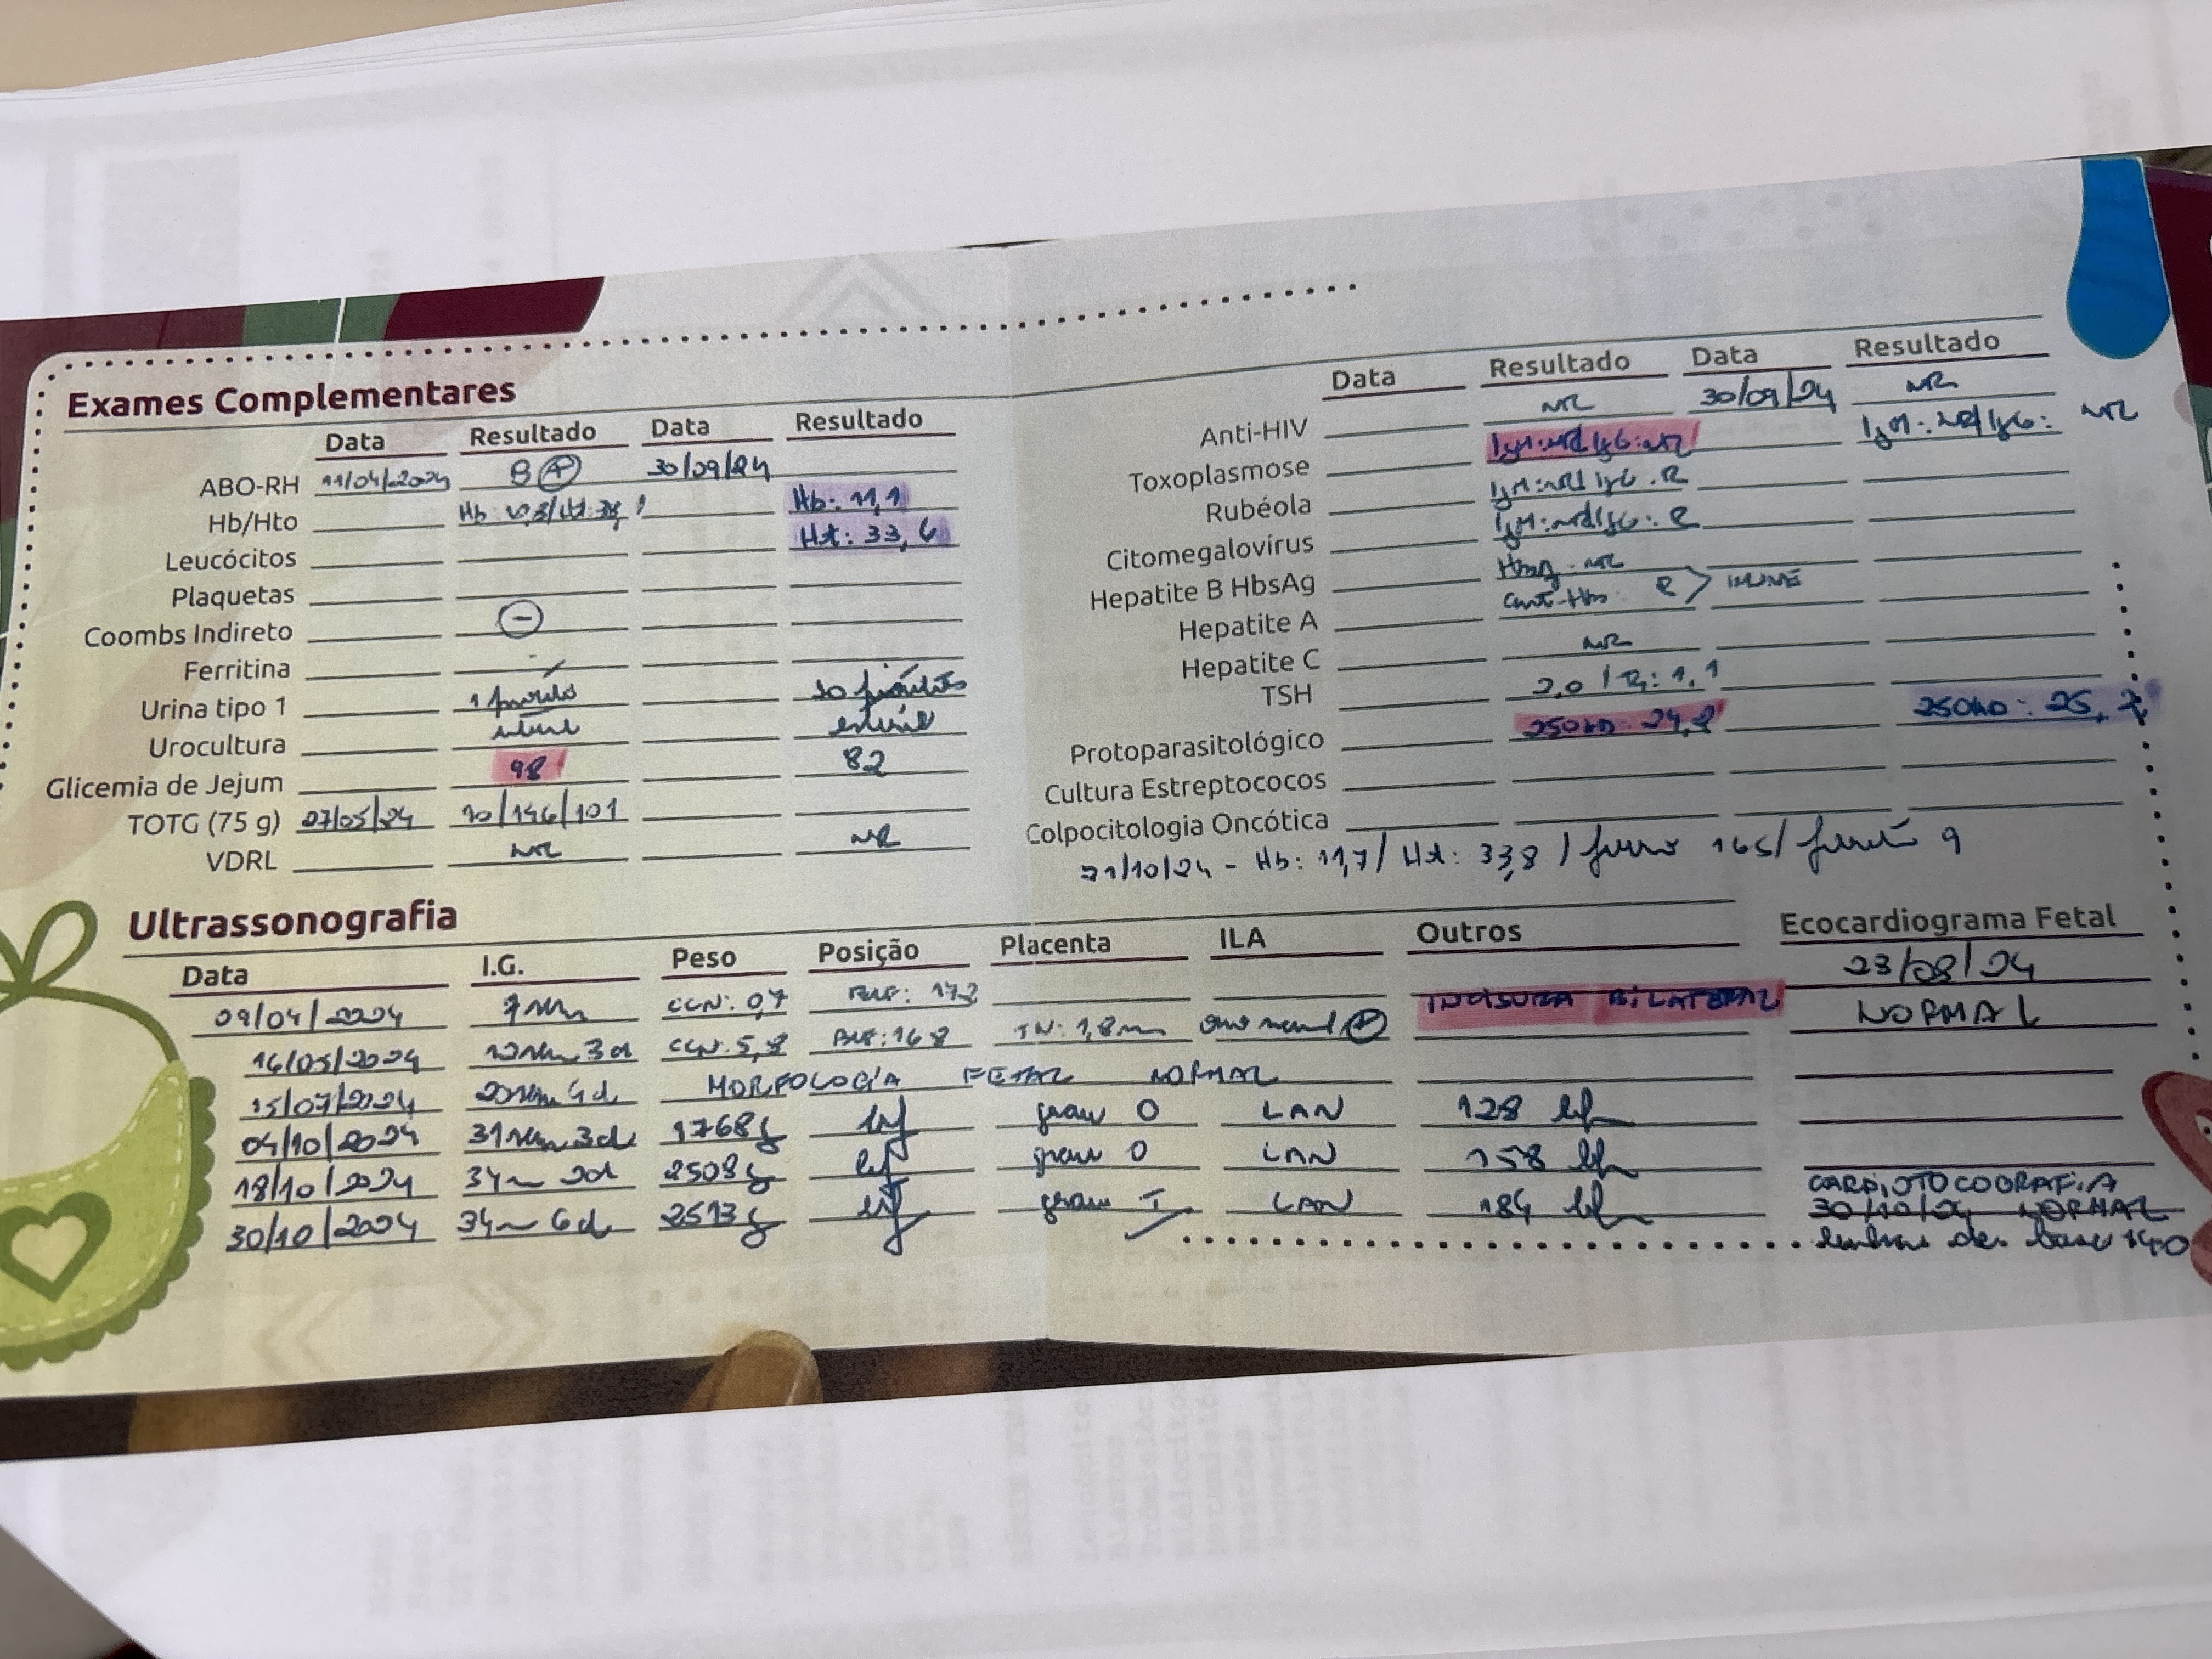 Exames Complementares
Data Resultado Data Resultado
ABO-RH 11/04/2024 B + 30/09/24
Hb/Hto Hb: Hb: 11,1
Leucócitos Ht: 33,6
Plaquetas
Coombs Indireto -
Ferritina
Urina tipo 1 1 piócito 10 piócitos
Urocultura estéril estéril
Glicemia de Jejum 98 82
TOTG (75 g) 07/05/24 /146/101
VDRL NR NR
Data Resultado Data Resultado
Anti-HIV NR 30/09/24 NR
Toxoplasmose IgM: NR IgG: NR IgM: NR/IgG: NR
Rubéola IgM: NR IgG: R
Citomegalovírus IgM: NR IgG: R
Hepatite B HbsAg HbsAg: NR
Hepatite A anti-Hbs: R > IMUNE
Hepatite C NR
TSH 2,0 / 1,1
Protoparasitológico 25OHD: 24,8 25OHD: 25,
Cultura Estreptococos
Colpocitologia Oncótica
21/10/24 - Hb: 11,7 / Ht: 33,8 / ferro 165/ 9
Ultrassonografia
Data I.G. Peso Posição Placenta ILA Outros Ecocardiograma Fetal
09/04/2024 7 sem CCN: 0,7 BCF: 172 23/08/24
16/05/2024 12 sem 3d CCN: 5,8 BCF: 168 TN: 1,8mm osso nasal + INCISURA BILATERAL NORMAL
15/07/2024 MORFOLOGIA FETAL NORMAL
04/10/2024 31 sem 3d 1768g cef grau 0 LAN 128 bpm
18/10/2024 34 2508g cef grau 0 LAN 158 bpm CARDIOTOCOGRAFIA
30/10/2024 34 6d 2513g cef grau I LAN 184 bpm 30/10/24 NORMAL
linha de base 140